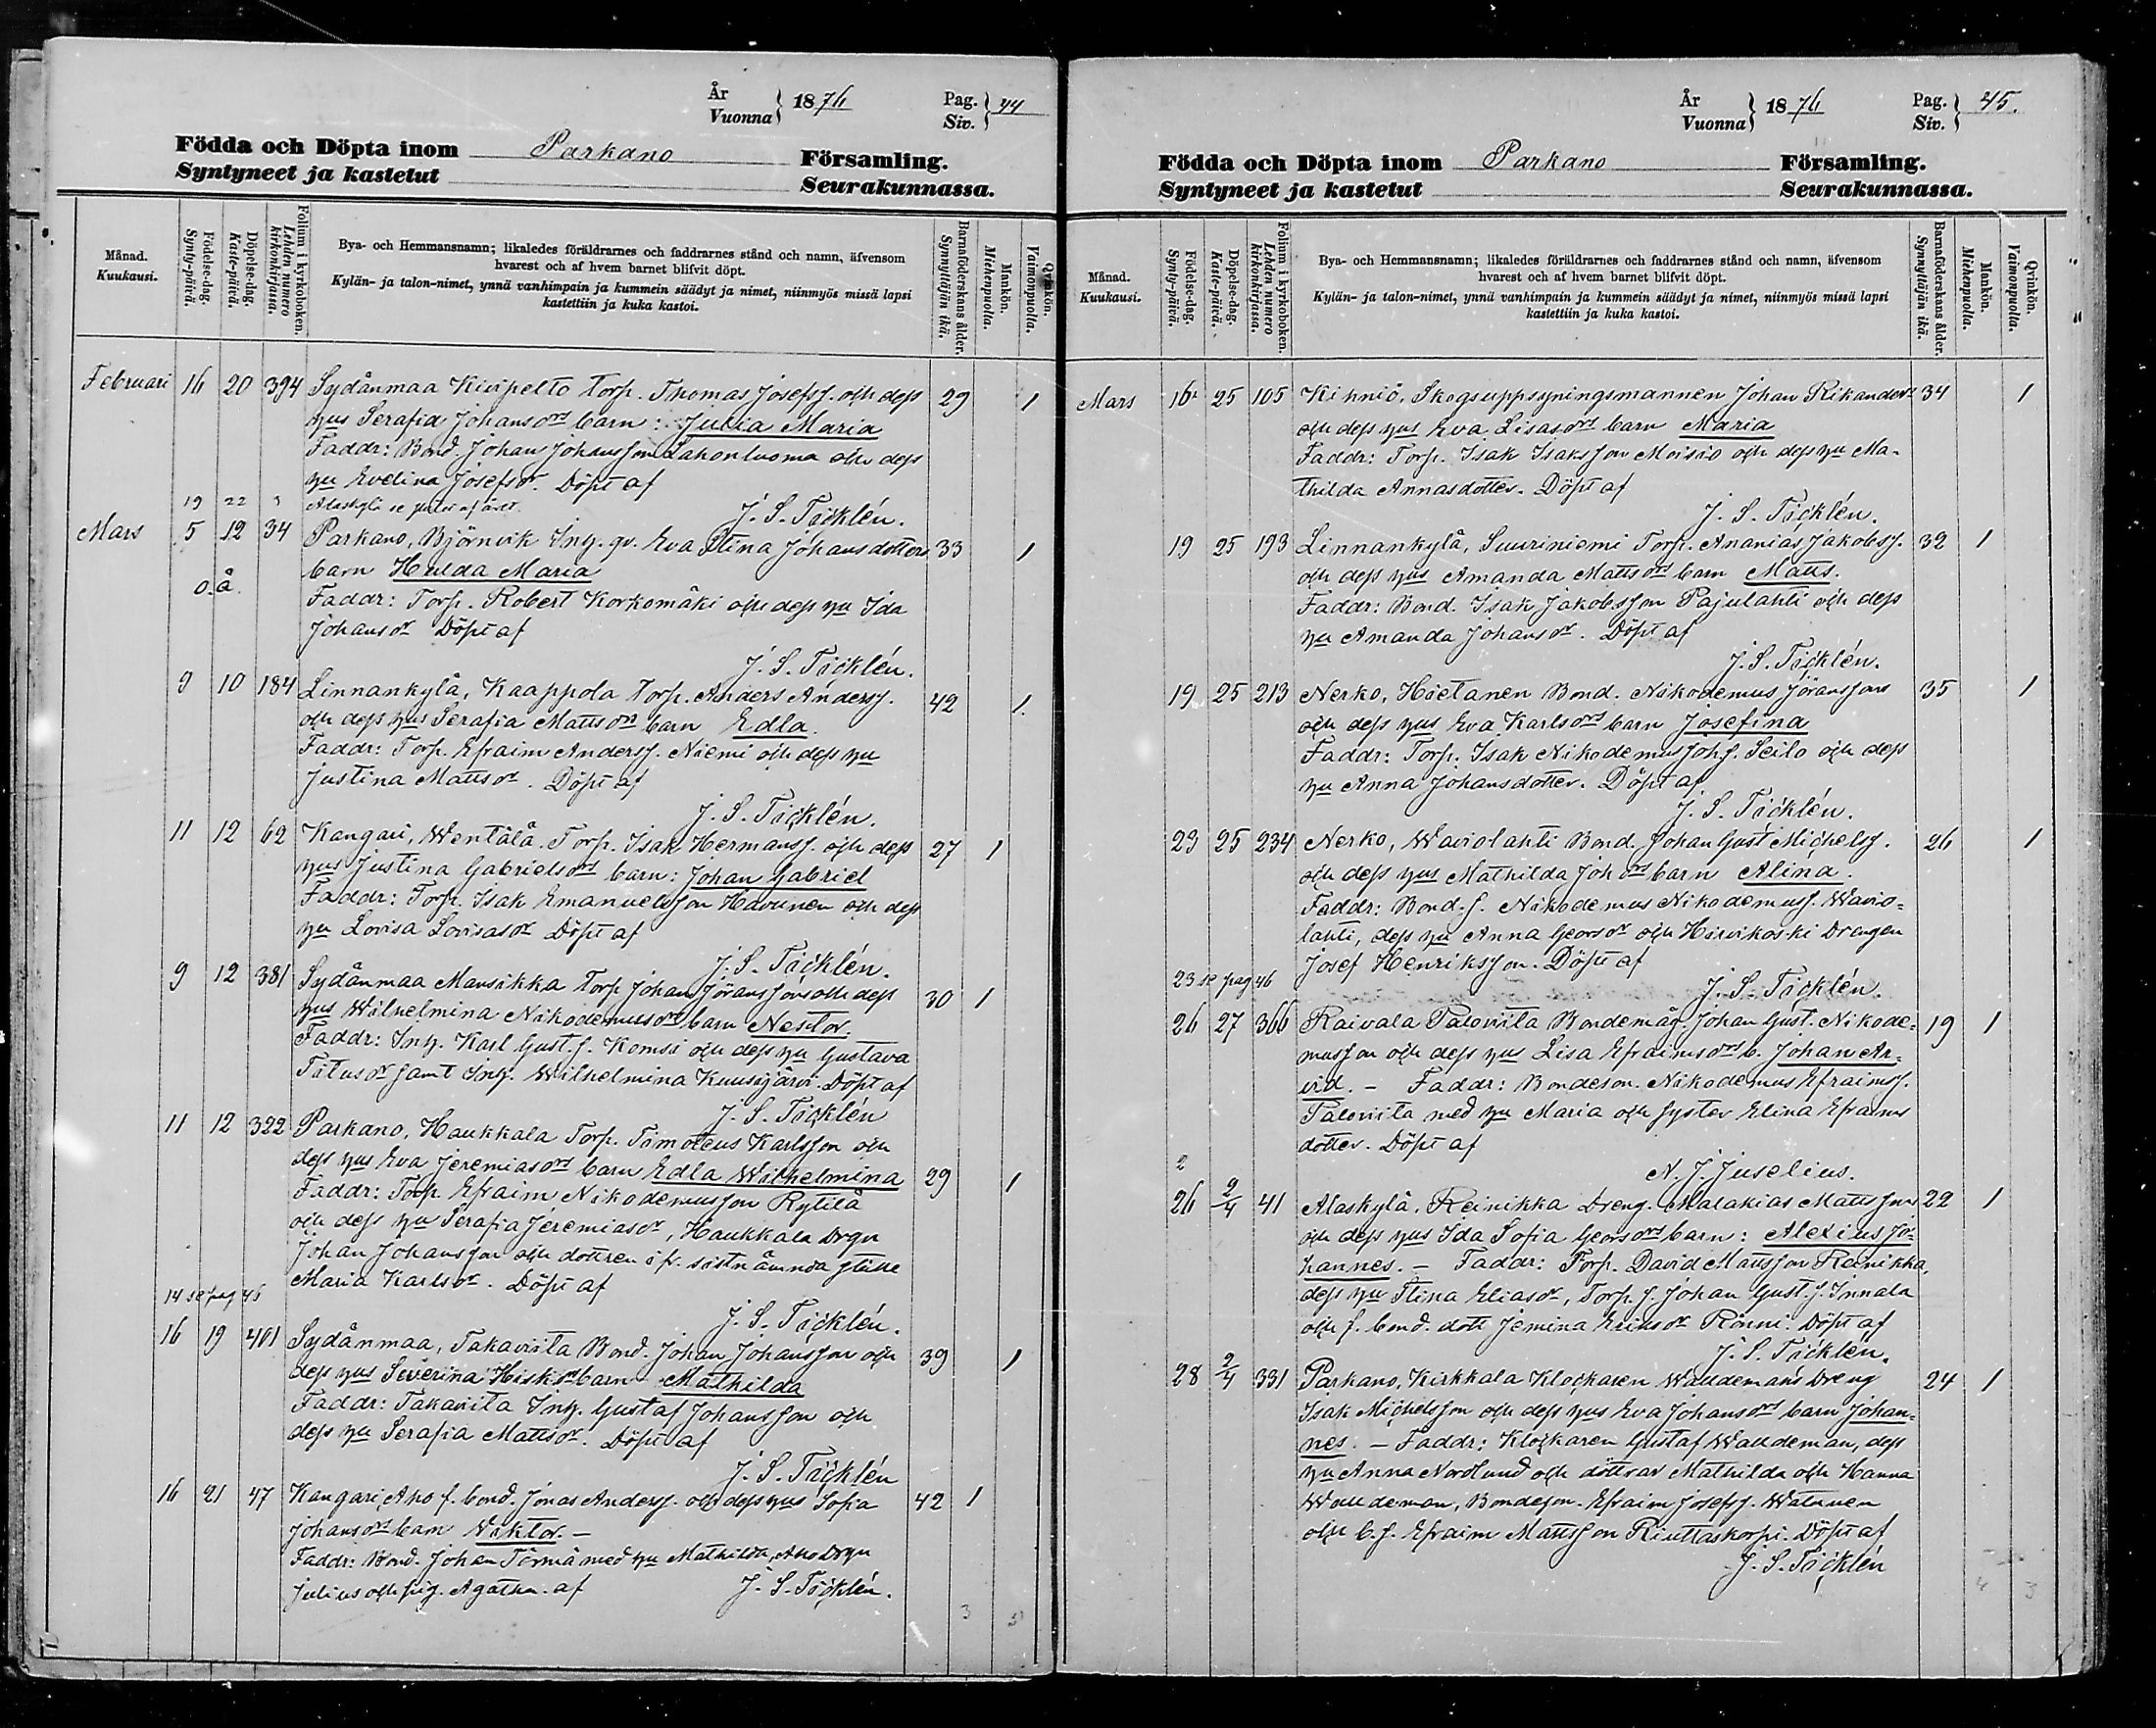 År
Vuonna } 1876
Pag.
Siv. } 44
Födda och Döpta inom Parkano Församling.
Syntyneet ja kastetut Seurakunnassa.
Månad.
Kuukausi.
Födelse-dag.
Synty-päivä.
Döpelse-dag.
Kaste-päivä.
Folium i kyrkoboken.
Lehden numero
kirkonkirjassa.
Bya- och Hemmansnamn; likaledes föräldrarnes och faddrarnes stånd och namn, äfvensom
hvarest och af hvem barnet blifvit döpt.
Kylän- ja talon-nimet, ynnä vanhimpain ja kummein säädyt ja nimet, niinmyös missä lapsi
kastettiin ja kuka kastoi.
Barnaföderskans ålder.
Synnyttäjän ikä.
Mankön.
Miehenpuolla.
Qvinkön.
Vaimonpuolla.
Februari 16 20 394 Sydänmaa Kivipelto Torp. Thomas Josefss. och dess 29 1
hus Serafia Johansdrs barn: Julia Maria
Faddr: Bond. Johan Johansson Lahonluoma och dess
hu Evelina Josefsdr. Döpt af
J. S. Täcklén.
19 22
Mars 5 12 34 Parkano, Björnvik Inh. qv. Eva Stina Johansdotters 33 1
barn Hulda Maria
o. ä.
Faddr: Torp. Robert Korkomäki och dess hu Ida
Johansdr Döpt af
J. S. Täcklén.
9 10 184 Linnankylä, Kaappola Torp. Anders Anderss. 42 1.
och dess hus Serafia Mattsdrs barn Edla.
Faddr: Torp. Efraim Anderss. Niemi och dess hu
Justina Mattsdr. Döpt af
J. S. Täcklén.
11 12 62 Kangari, Wentälä. Torp. Isak Hermanss. och dess 27 1
hus Justina Gabrielsdrs barn: Johan Gabriel
Faddr: Torp. Isak Emanuelsson Havunen och dess
hu Lovisa Lovisasdr Döpt af
J. S. Täcklén.
9 12 381 Sydänmaa Mansikka Torp Johan Göranssons och dess 30 1
hus Wilhelmina Nikodemusdrs barn Nestor.
Faddr: Inh. Karl Gust. s. Komsi och dess hu Gustava
Titusdr samt Inh. Wilhelmina Kuusijärvi. Döpt af
J. S. Täcklén
11 12 322 Parkano, Haukkala Torp. Timoteus Karlsson och
dess hus Eva Jeremiasdrs barn Edla Wilhelmina 29 1
Faddr: Torp Efraim Nikodemusson Rytilä
och dess hu Serafia Jeremiasdr, Haukkala Drgn
Johan Johansson och dottren i fr. sistnämnda ställe
Maria Karlsdr. Döpt af
J. S. Täcklén.
14 se pag 45
16 19 401 Sydänmaa, Takaviita Bond. Johan Johansson och 39 1
dess hus Severina Hiskdrs barn Mathilda
Faddr: Takaviita Inh. Gustaf Johansson och
dess hu Serafia Mattsdr. Döpt af
J. S. Täcklén
16 21 47 Kangari, Aho f. bond. Jonas Anderss. och dess hus Sofia 42 1
Johansdrs barn Viktor. –
Faddr: Bond. Johan Törmä med hu Mathilda, Aho Drgn
Julius och pig. Agatha. af J. S. Täcklén.
3 5
År
Vuonna } 1876
Pag.
Siv. } 45.
Födda och Döpta inom Parkano Församling.
Syntyneet ja kastetut Seurakunnassa.
Månad.
Kuukausi.
Födelse-dag.
Synty-päivä.
Döpelse-dag.
Kaste-päivä.
Folium i kyrkoboken.
Lehden numero
kirkonkirjassa.
Bya- och Hemmansnamn; likaledes föräldrarnes och faddrarnes stånd och namn, äfvensom
hvarest och af hvem barnet blifvit döpt.
Kylän- ja talon-nimet, ynnä vanhimpain ja kummein säädyt ja nimet, niinmyös missä lapsi
kastettiin ja kuka kastoi.
Barnaföderskans ålder.
Synnyttäjän ikä.
Mankön.
Miehenpuolla.
Qvinkön.
Vaimonpuolla.
Mars 16 25 105 Kihniö, Skogsuppsyningsmannen Johan Rikanders 34 1
och dess hus Eva Lisasdrs barn Maria
Faddr: Torp. Isak Isaksson Moisio och dess hu Ma-
thilda Annasdotter. Döpt af
J. S. Täcklén.
19 25 193 Linnankylä, Suuriniemi Torp. Ananias Jakobss. 32 1
och dess hus Amanda Mattsdrs barn Matts.
Faddr: Bond. Isak Jakobsson Pajulahti och dess
hu Amanda Johansdr. Döpt af
J. S. Täcklén.
19 25 213 Nerko, Hietanen Bond. Nikodemus Göranssons 35 1
och dess hus Eva Karlsdrs barn Josefina
Faddr: Torp. Isak Nikodemus Joh.s. Seilo och dess
hu Anna Johansdotter. Döpt af
J. S. Täcklén.
23 25 234 Nerko, Waviolahti Bond. Johan Gust Michelss. 26 1
och dess hus Mathilda Johdrs barn Alina.
Faddr: Bond. s. Nikodemus Nikodemuss. Wavio-
lahti, dess hu Anna Georsdr och Hirvikoski Drengen
Josef Henriksson. Döpt af
J. S. Täcklén.
23 se pag 46
26 27 366 Raivala Paloviita Bondemåg Johan Gust. Nikode- 19 1
musson och dess hus Lisa Efraimsdrs b. Johan Ar-
vid. – Faddr: Bondeson. Nikodemus Efraimss.
Paloviita med hu Maria och syster Elina Efraims
dotter. Döpt af
N. J. Juselius.
2
26 2/4 41 Alaskylä, Reinikka Dreng. Malakias Mattssons 22 1
och dess hus Ida Sofia Georsdrs barn: Alexius Jo-
hannes. – Faddr: Torp. David Mattsson Reinikka,
dess hu Stina Eliasdr, Torp. s. Johan Gust. s. Innala
och f. bond. dott Jemina Eriksdr Rönni. Döpt af
J. S. Täcklén.
28 2/4 331 Parkano, Kirkkala Klockaren Walldemans Dreng 24 1
Isak Michelsson och dess hus Eva Johansdrs barn Johan-
nes. – Faddr: Klockaren Gustaf Walldeman, dess
hu Anna Nordlund och döttrar Mathilda och Hanna
Walldeman, Bondeson. Efraim Josefss. Watunen
och b.s. Efraim Mattsson Riuttaskorpi. Döpt af
J. S. Täcklén
4 3